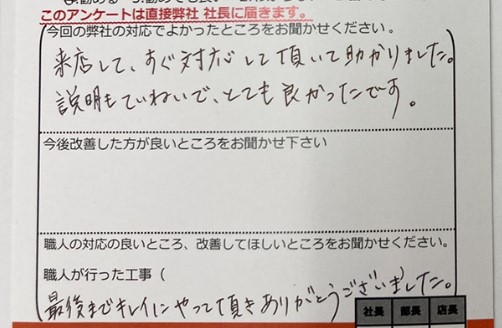 このアンケートは直接弊社 社長に届きます。
(今回の弊社の対応でよかったところをお聞かせください。
来店して、すぐ対応して頂いて助かりました。
説明もていねいで、とても良かったです。
)
今後改善した方が良いところをお聞かせ下さい
職人の対応の良いところ、改善してほしいところをお聞かせください。
職人が行った工事(
最後までキレイにやって頂きありがとうございました。
社長 部長 店長